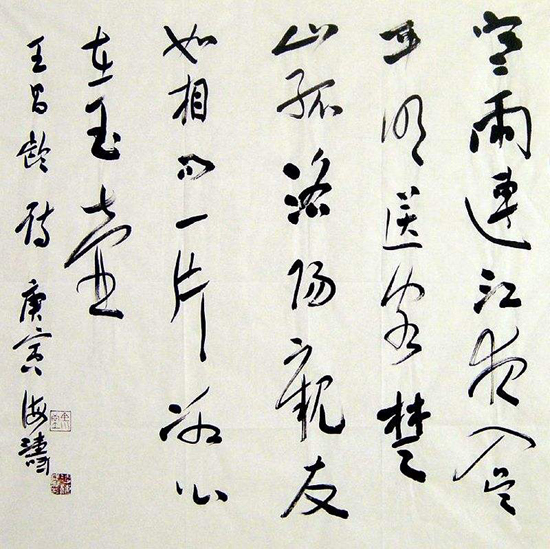 寒雨連江夜入吳
平明送客楚
山孤洛陽親友
如相問一片冰心
在玉壺
王昌齡詩 庚寅 海濤